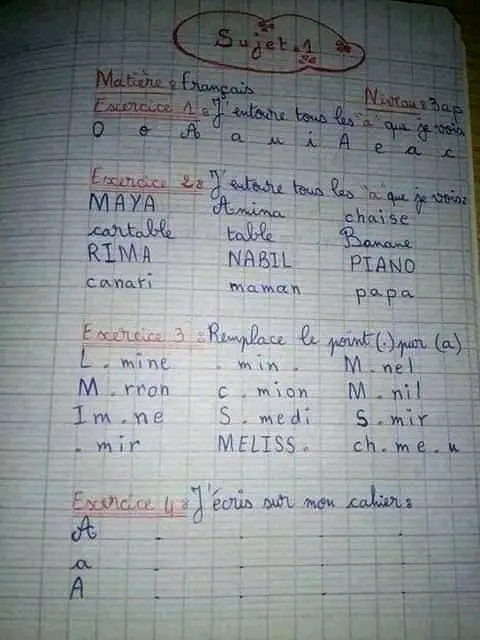 Sujet.1
Matière : français
Niveau : 3ap
Exercice 1 : J'entoure tous les "a" que je vois
O o A a u i A e a c
Exercice 2 : J'entoure tous les "a" que je vois :
MAYA Amina chaise
cartable table Banane
RIMA NABIL PIANO
canari maman papa
Exercice 3 : Remplace le point (.) par (a)
L . mine . min . M . nel
M . rron c . mion M . nil
Im . ne S . medi S . mir
. mir MELISS . ch . me . u
Exercice 4 : J'écris sur mon cahier :
A . . . .
a . . . .
A . . . .